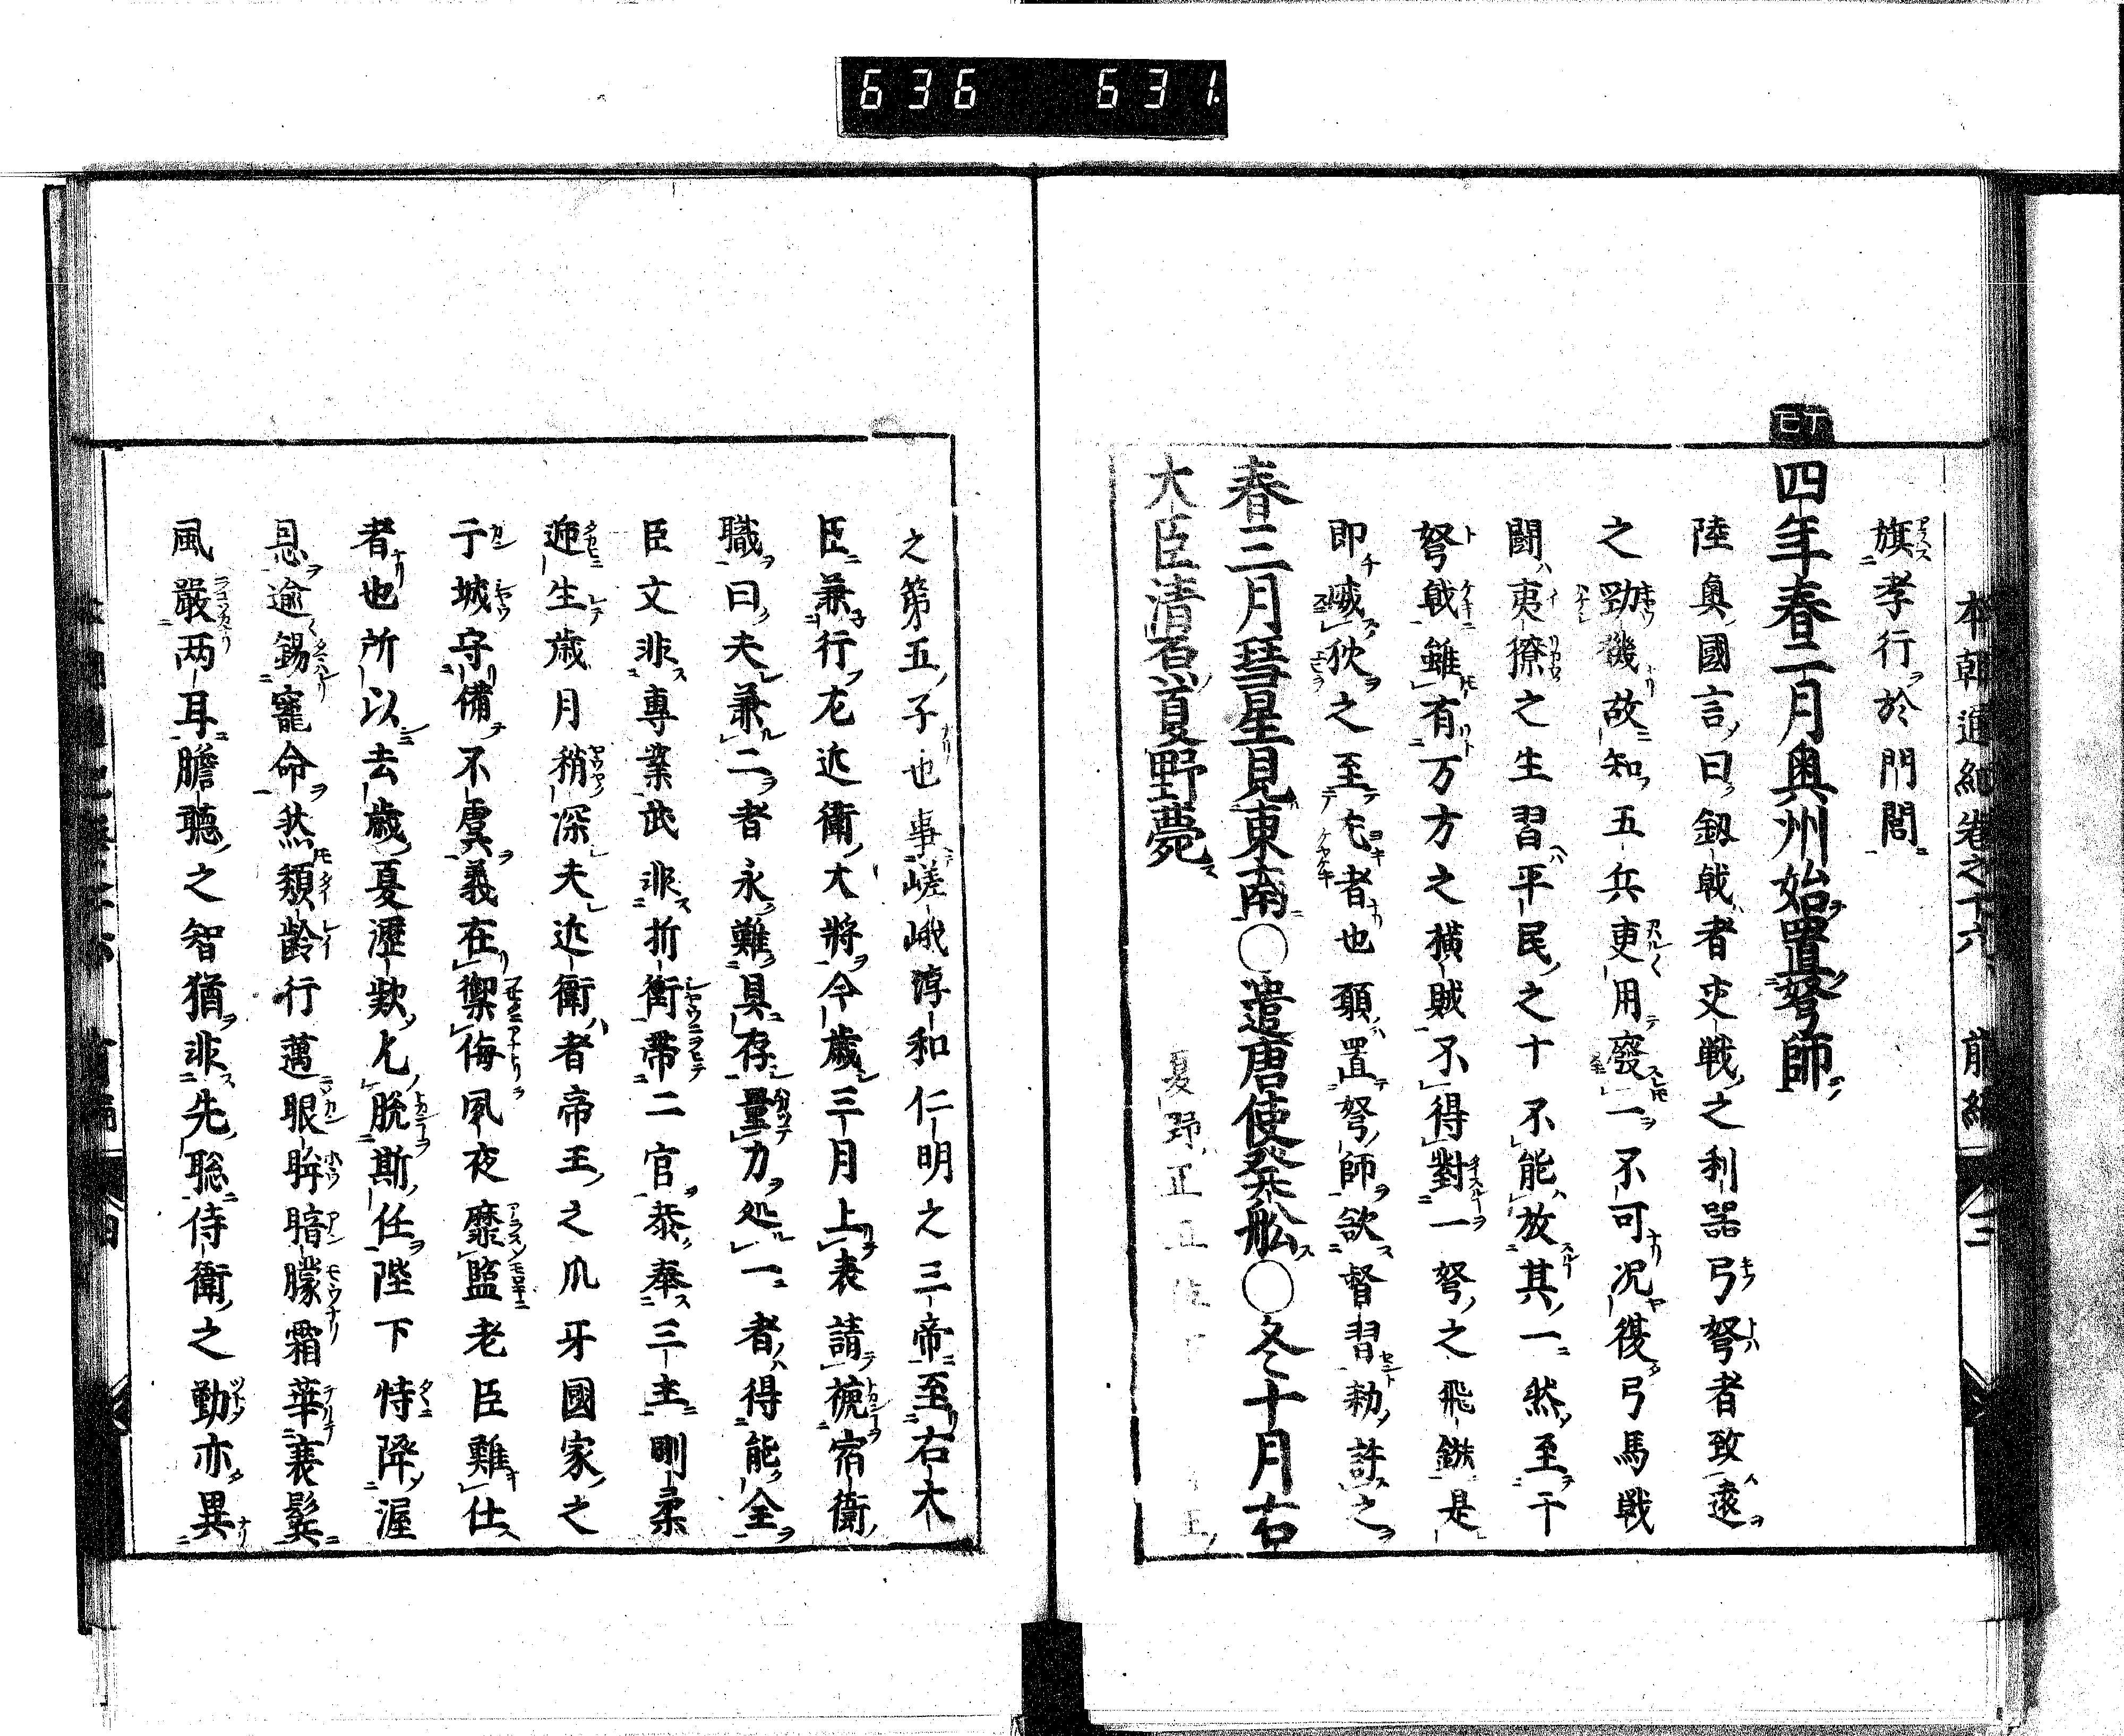 636 631.
本朝通紀卷之十六 前編 三
旗孝行於門閭
丁巳
四年春二月奥州始置弩師
陸奥國言曰釼戟者交戦之利器弓弩者致遠
之勁機故知五兵更用廢一不可况復弓馬戦
闘夷獠之生習平民之十不能放其一然至干
弩戟雖有万方之横賊不得對一弩之飛鏃是
即威狄之至尤者也願置弩師欲督習勅許之
春三月彗星見東南○遣唐使發舩○冬十月右
大臣清原夏野薨
夏野正
之第五子也事嵯峨淳和仁明之三帝至右大
臣兼行左近衛大將今歳三月上表請宿衛
職曰夫兼二者永難具存量力処一者得能全
臣文非専業武非折衝帯二官忝奉三主剛柔
遞生歳月稍深夫近衛者帝王之爪牙國家之
干城守備不虞義在禦侮夙夜靡盬老臣難仕
者也所以去歳憂瀝欵乞脱斯任陛下恃降渥
恩逾錫寵命然頽齢行邁眼眸暗矇霜華衰鬂
風嚴两耳膽聴之智猶非先聡侍衛之勤亦異